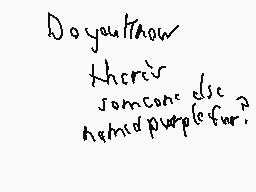 Do you know
there's
someone else
named purplefur?